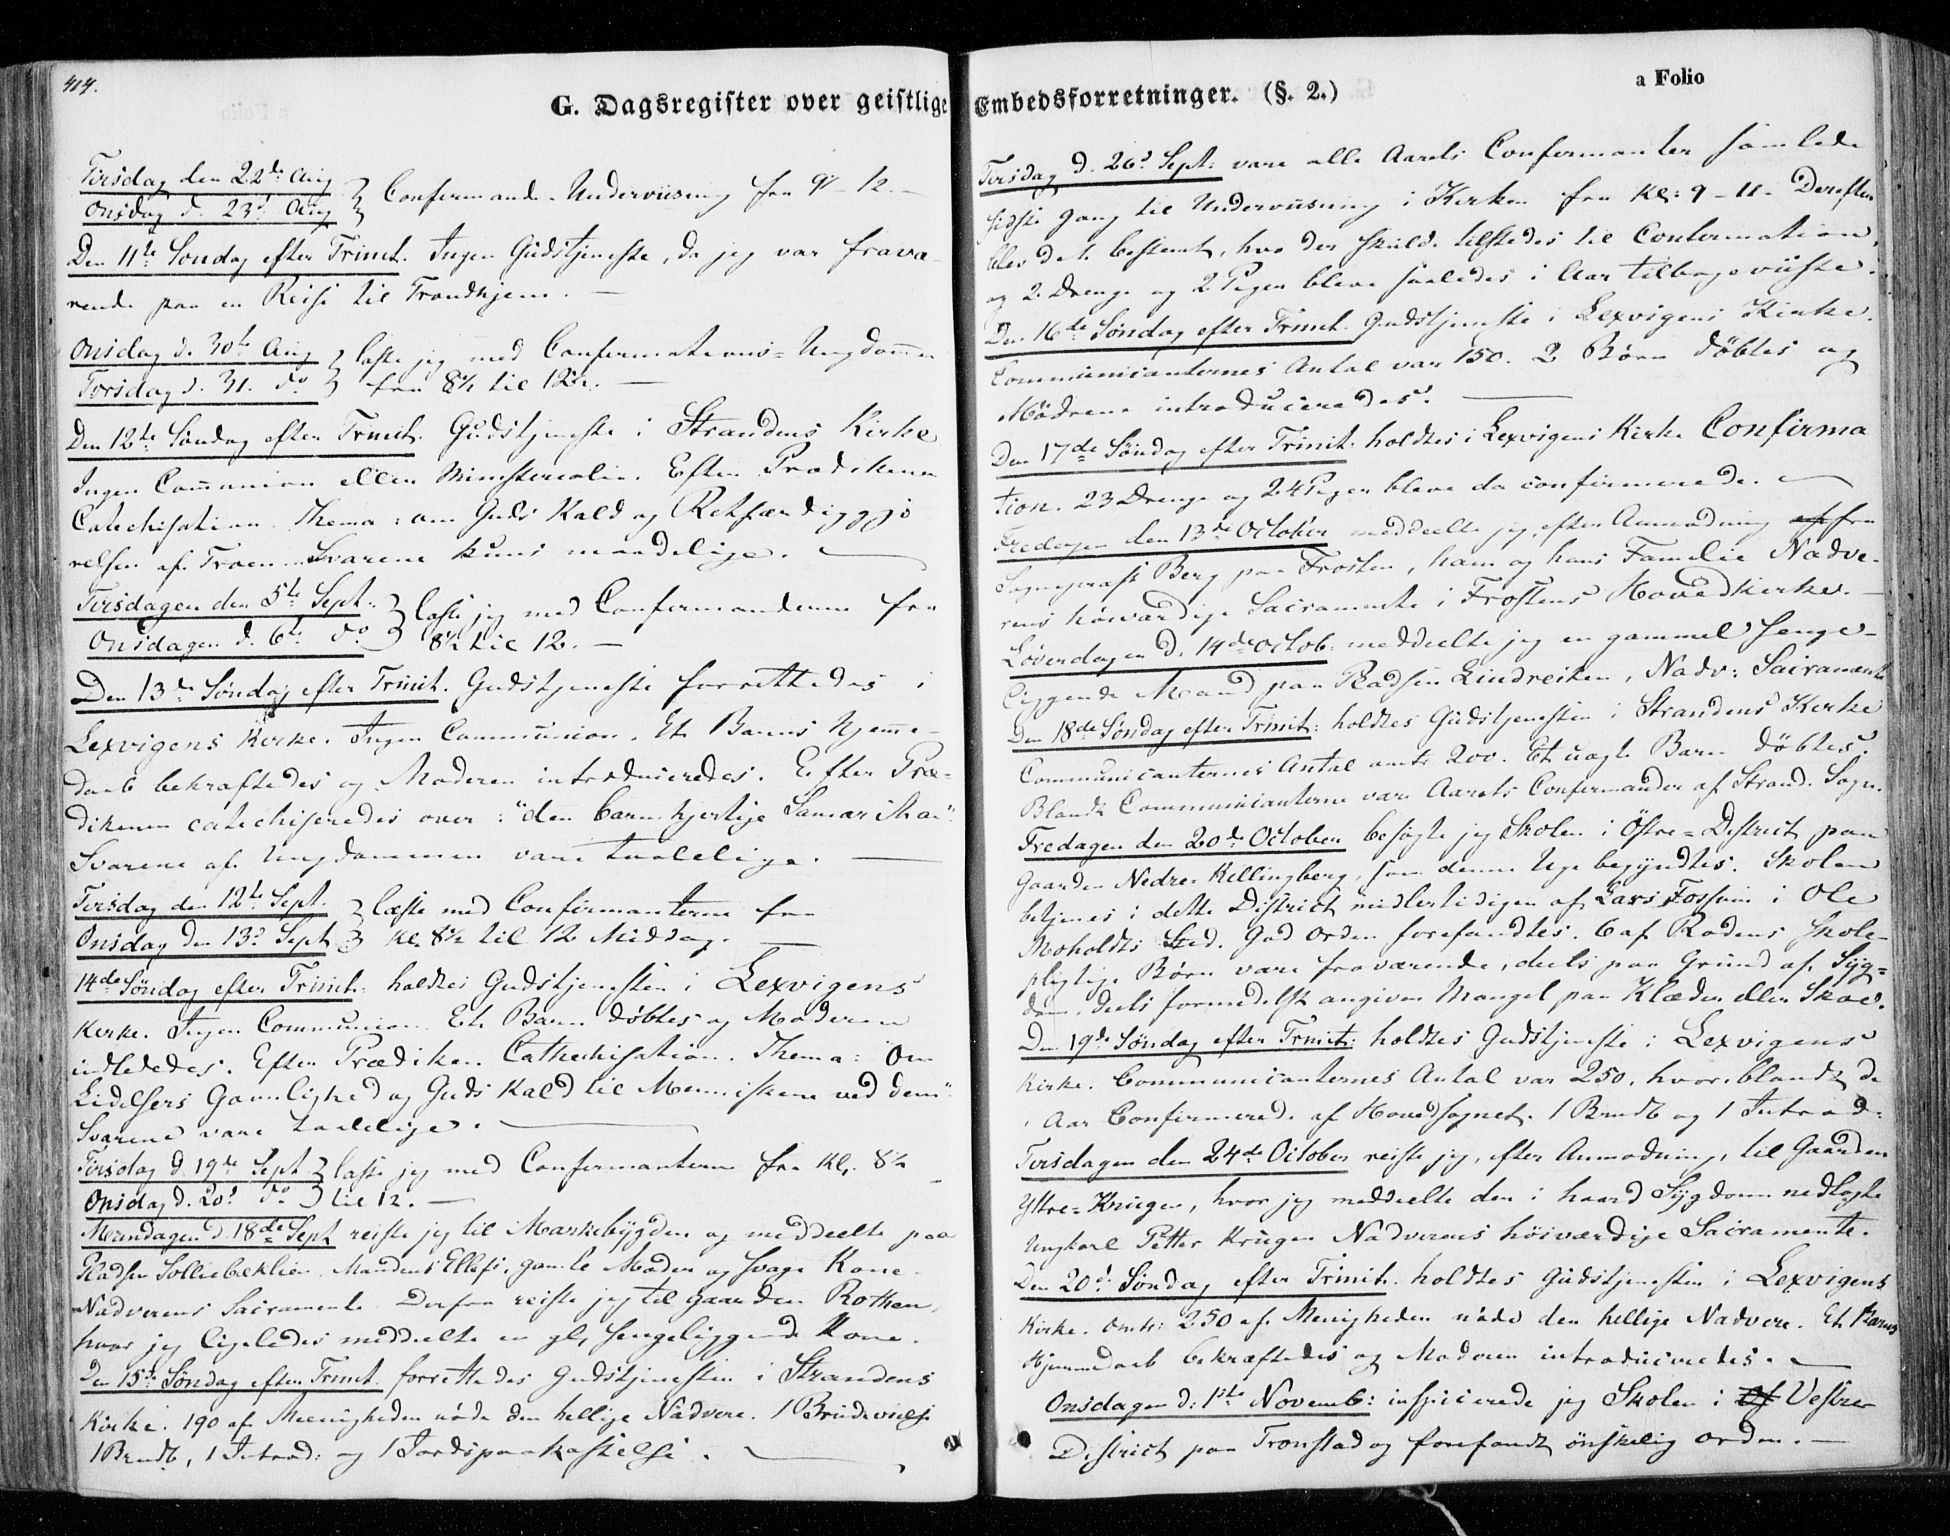 414.
G. Dagsregister over geistlige
Tirsdag den 22de Aug
Onsdag d. 23d Aug } Confirmand-Underviisning fra 9-12.
Den 11te Søndag efter Trinit. Ingen Gudstjeneste, da jeg var fravæ-
rende paa en Reise til Trondhjem. —
Onsdag d. 30te Aug } læste jeg med Confirmations-Ungdommen
Torsdag d. 31. do } fra 8½ til 12½. —
Den 12te Søndag efter Trinit. Gudstjeneste i Strandens Kirke
Ingen Communion eller Ministerialia. Efter Prædikenen
Catechisation. Thema: om Guds Kald og Retfærdiggjø
relsen af Troen. Svarene kuns maadelige. —
Tirsdagen den 5te Sept. } læste jeg med Confirmanderne fra
Onsdagen d. 6te do } 8½ til 12. —
Den 13de Søndag efter Trinit. Gudstjeneste forrettedes i
Lexvigens Kirke. Ingen Communion. Et Barns Hjemme-
daab bekræftedes og Moderen introduceredes. Efter Præ-
dikenen catechiseredes over: "den barmhjertige Samaritan".
Svarene af Ungdommen vare taalelige. —
Tirsdag den 12te Sept. } læste med Confirmanterne fra
Onsdag den 13d Sept } Kl. 8½ til 12 Middag. —
14de Søndag efter Trinit. holdtes Gudstjenesten i Lexvigens
Kirke. Ingen Communion. Et Barn døbtes og Moderen
indlededes. Efter Prædiken Cathechisation. Thema: Om
Lidelsers Gavnlighed og Guds Kald til Menneskene ved dem".
Svarene vare taalelige. —
Tirsdag d. 19de Sept } læste jeg med Confirmanterne fra Kl. 8½
Onsdag d. 20d do } til 12. —
Mandagen d. 18de Sept reiste jeg til Markebygden og meddeelte paa
Pladsen Solliebæklien, Mandens Ellefs, gamle Moder og svage Kone
Nadverens Sacramente. Derfra reiste jeg til Gaarden Rothen,
hvor jeg ligeledes meddelte en gl. sengeliggende Kone.
Den 15de Søndag efter Trinit. forrettedes Gudstjenesten i Strandens
Kirke. 190 af Menigheden nøde den hellige Nadvere. 1 Brudevielse
1 Barnedb, 1 Introd: og 1 Jordspaakastelse. —
Embedsforretninger. (§. 2.)
a Folio
Tirsdag d. 26d Sept: vare alle Aarets Confirmanter samlede
sidste Gang til Underviisning i Kirken fra Kl: 9-11. Derefter
blev det bestemt, hvo der skulde tilstedes til Confirmation,
og 2 Drenge og 2 Piger bleve saaledes i Aar tilbageviiste.
Den 16de Søndag efter Trinit. Gudstjeneste i Lexvigens Kirke.
Communicanternes Antal var 150. 2 Børn døbtes og
Mødrene introduceredes. —
Den 17de Søndag efter Trinit: holdtes i Lexvigens Kirke Confirma
tion. 23 Drenge og 24 Piger bleve da confirmerede. —
Fredagen den 13de October meddeelte jeg, efter Anmodning af fra
Sognepræst Berg paa Frosten, ham og hans Familie Nadve-
rens høiværdige Sacramente i Frostens Hovedkirke. —
Løverdagen d. 14de Octob: meddeelte jeg en gammel senge-
liggende Mand paa Pladsen Lindreiten, Nadv: Sacramente
Den 18de Søndag efter Trinit: holdtes Gudstjenesten i Strandens Kirke
Communicanternes Antal omtr 200. Et uægte Barn døbtes.
Blandt Communicanterne vare Aarets Confirmander af Strand. Sogn.
Fredagen den 20de October besøgte jeg Skolen i Østre-District paa
Gaarden Nedre Killingberg, som denne Uge begyndtes. Skolen
betjenes i dette District midlertidigen af Lars Fossum i Ole
Moholdts Sted. God Orden forefandtes. 6 af Rodens skole-
pligtige Børn vare fraværende, deels paa Grund af Syg-
dom, deels formedelst angiven Mangel paa Klæder eller Skoe.
Den 19de Søndag efter Trinit: holdtes Gudstjeneste i Lexvigens
Kirke. Communicanternes Antal var 250, hvoriblandt de
i Aar Confirmerede af Hovedsognet. 1 Barnedb og 1 Introd:
Tirsdagen den 24de October reiste jeg, efter Anmodning, til Gaarden
Ytre-Krugen, hvor jeg meddeelte den i haard Sygdom nedlagte
Ungkarl Petter Krugen Nadverens høiværdige Sacramente.
Den 20d Søndag efter Trinit. holdtes Gudstjenesten i Lexvigens
Kirke. Omtr: 250 af Menigheden nøde den hellige Nadvere. Et Barns
Hjemmedaab bekræftedes og Moderen introduceredes. —
Onsdagen d: 1ste Novemb: inspicerede jeg Skolen i Vestre
District paa Tronstad og forefandt ønskelig Orden. —